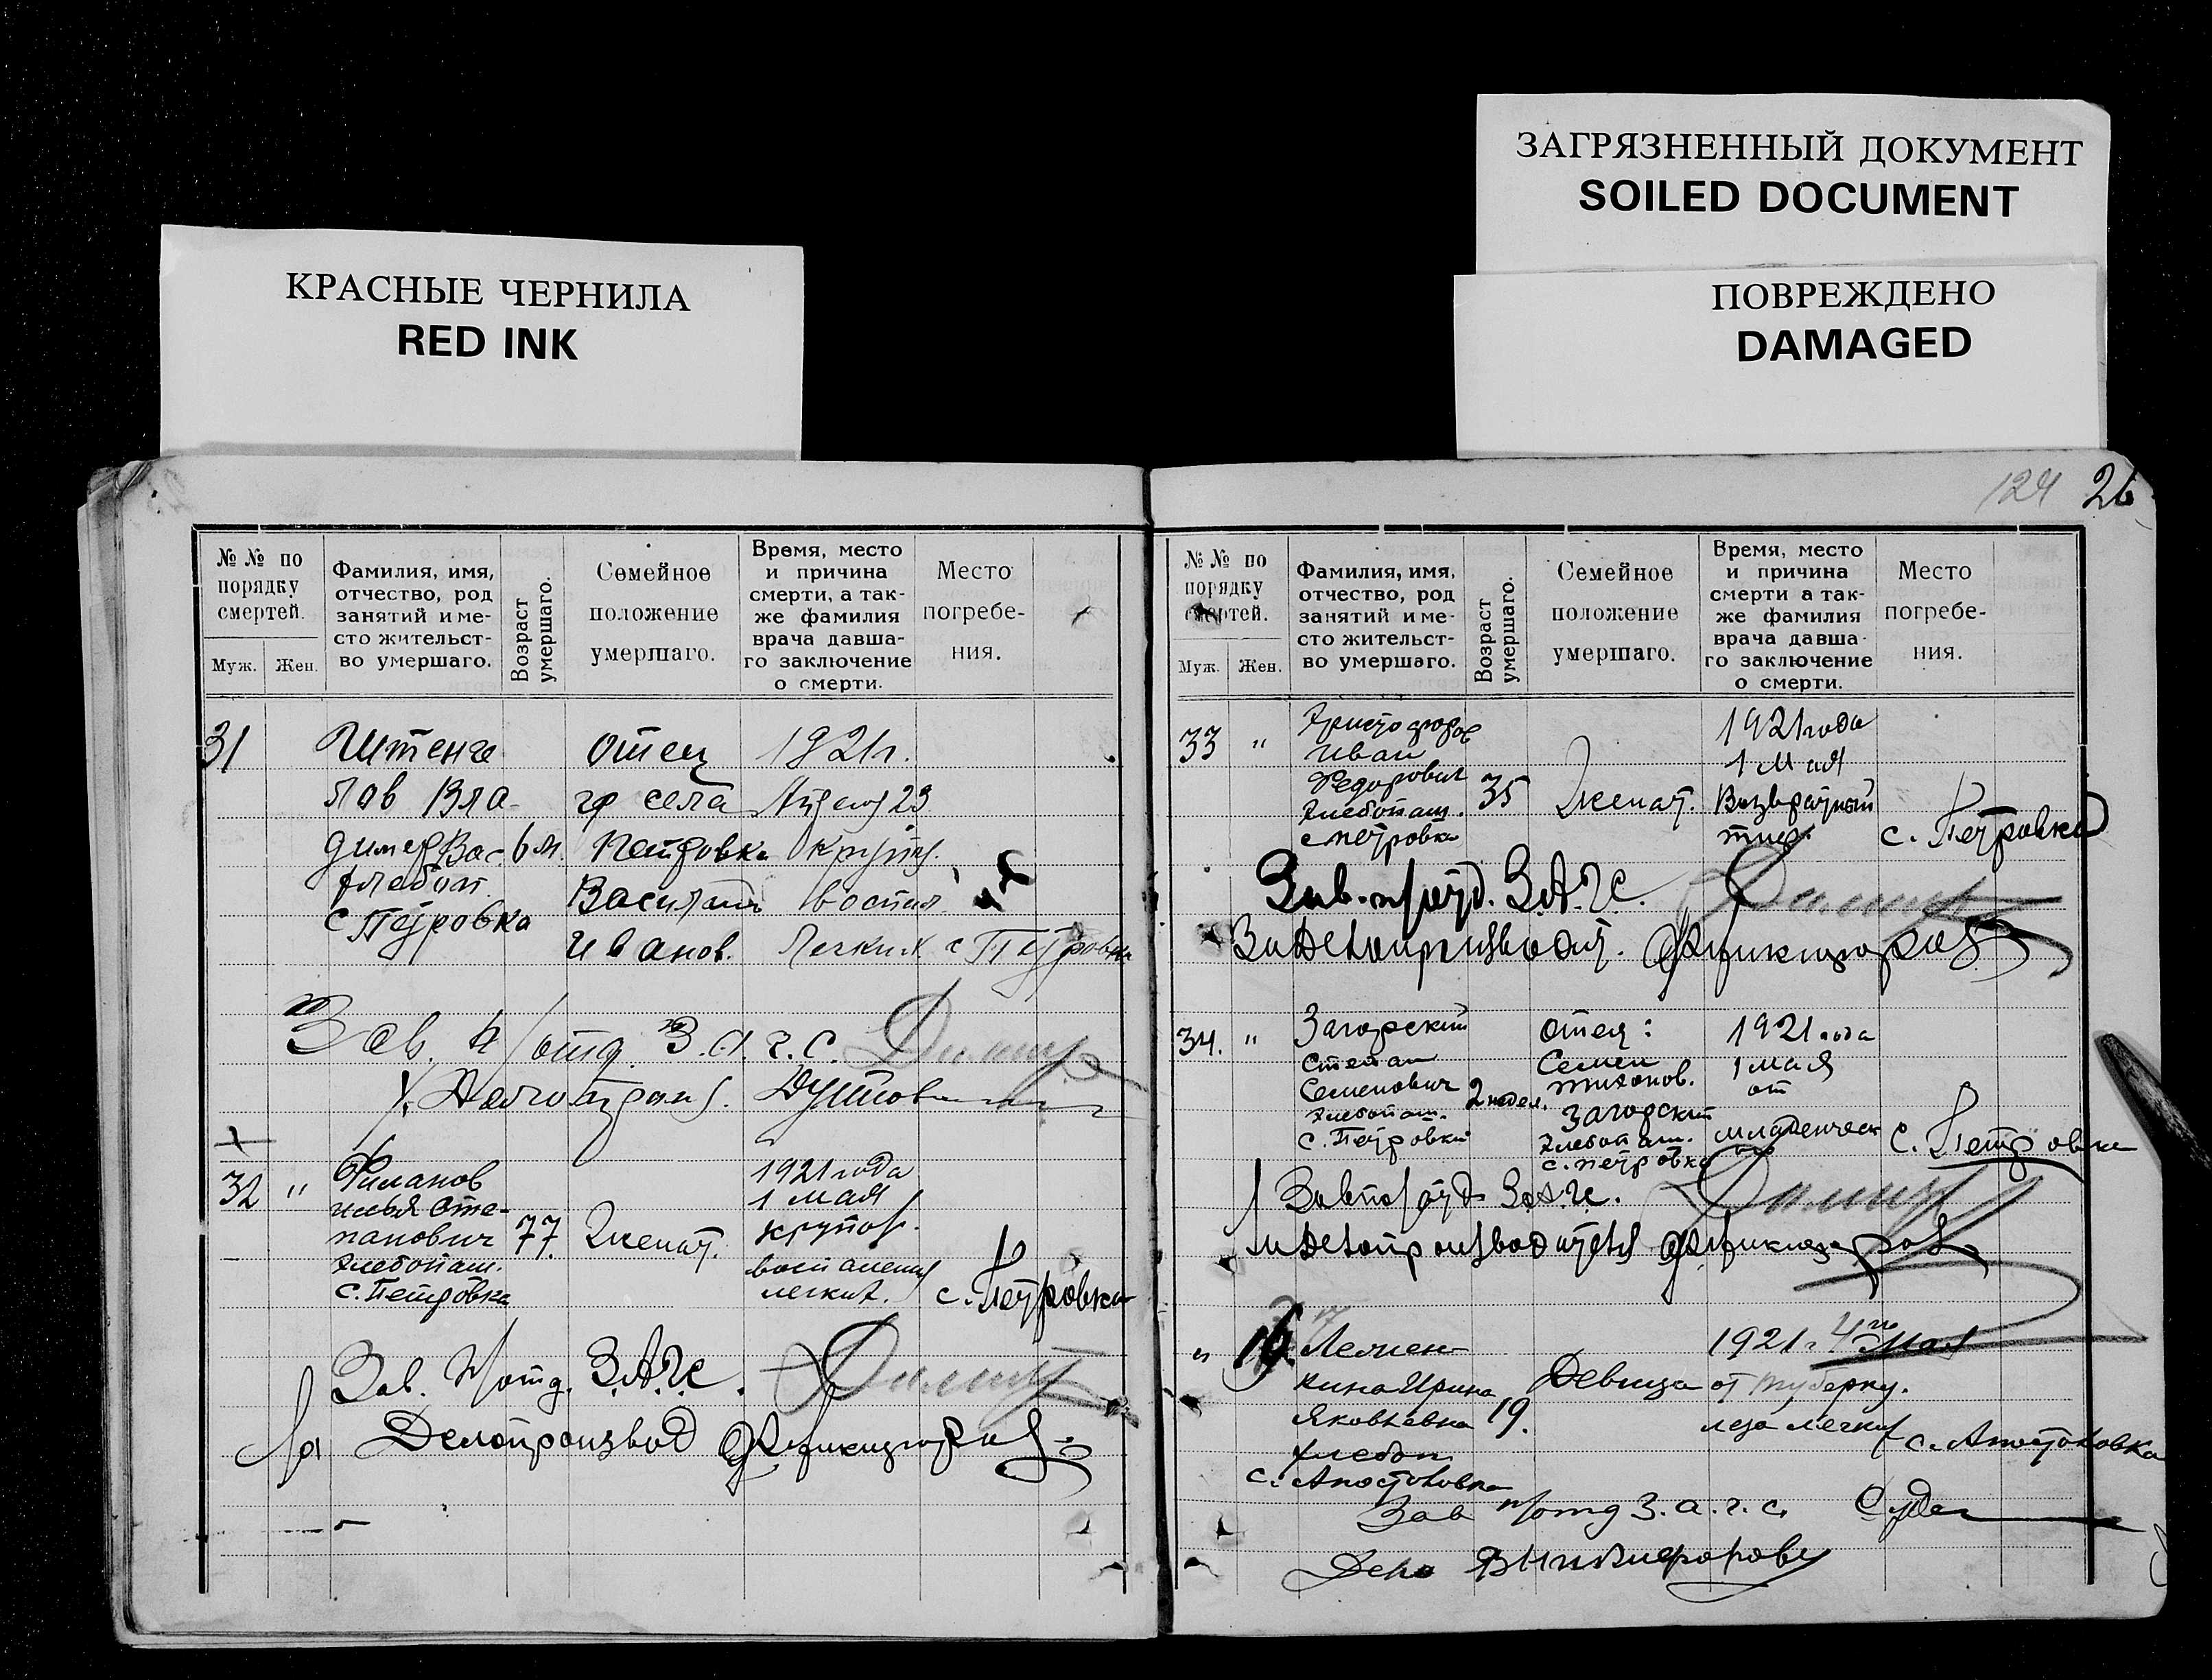 ЗАГРЯЗНЕННЫЙ ДОКУМЕНТ
SOILED DOCUMENT
КРАСНЫЕ ЧЕРНИЛА
RED INK
ПОВРЕЖДЕНО
DAMAGED
124 26
№ № по порядку смертей.
Муж. Жен.
Фамилия, имя,
отчество, род
занятий и ме-
сто жительст-
во умершаго.
Возраст
умершаго.
Семейное
положение
умершаго.
Время, место
и причина
смерти, а так-
же фамилия
врача давша-
го заключение
о смерти.
Место
погребе-
ния.
31
Штенге
лов Вла-
димер Вас.
хлебоп.
с Петровка
6 м.
отец
гр села
Петровка
Василий
Иванов.
1921 г.
23
крупоз.
воспал
легких
с Петровка
Зав. п/отд. З.А.Г.С.
32 "
Филанов
Илья Сте-
панович
хлебопаш.
с. Петровка
77.
Женат.
1921 года
1 мая
крупоз.
воспаления
легких.
с. Петровка
Зав. п/отд. З.А.Г.С.
Делопроизвод
№ № по
порядку
смертей.
Муж. Жен.
Фамилия, имя,
отчество, род
занятий и ме-
сто жительст-
во умершаго.
Возраст
умершаго.
Семейное
положение
умершаго.
Время, место
и причина
смерти а так-
же фамилия
врача давша-
го заключение
о смерти.
Место
погребе-
ния.
33 "
Христофоров
Иван
Федорович
хлебопаш.
с Петровка
35
Женат.
1921 года
1 Мая
Возвратный
тиф.
с. Петровка
Зав. п/отд. З.А.Г.С.
34. "
Загорский
Степан
Семенович
хлебопаш.
с. Петровки
2 недел.
отец:
Семен
Тихонов.
Загорский
хлебопаш.
с. Петровка
1921 года
1 мая
от
младенческ
с. Петровка
Зав п/отд З.А.Г.С.
" 16.
Лемен-
кина Ирина
Яковлевна
хлебоп
с. Апостоловка
19.
Девица
1921 г. 4го Мая
от туберку-
леза легких
с. Апостоловка
Зав п/отд З.а.г.с.
Дело